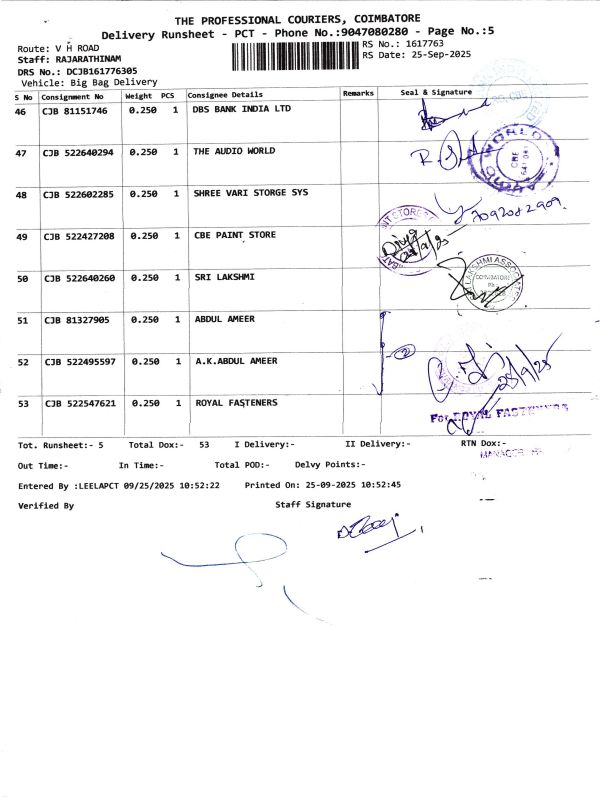 THE PROFESSIONAL COURIERS, COIMBATORE
Delivery Runsheet - PCT - Phone No.:9047080280 - Page No.:5
Route: V H ROAD
RS No.: 1617763
Staff: RAJARATHINAM
RS Date: 25-Sep-2025
DRS No.: DCJB161776305
Vehicle: Big Bag Delivery
S No Consignment No Weight PCS Consignee Details Remarks Seal & Signature
46 CJB 81151746 0.250 1 DBS BANK INDIA LTD
47 CJB 522640294 0.250 1 THE AUDIO WORLD
WORLD
CBE
641 001
AUDIO
48 CJB 522602285 0.250 1 SHREE VARI STORGE SYS
7092082909
49 CJB 522427208 0.250 1 CBE PAINT STORE
50 CJB 522640260 0.250 1 SRI LAKSHMI
LAKSHMI ASSOCIATES
COIMBATORE
51 CJB 81327905 0.250 1 ABDUL AMEER
52 CJB 522495597 0.250 1 A.K.ABDUL AMEER
2
25/9/25
53 CJB 522547621 0.250 1 ROYAL FASTENERS
For ROYAL FASTENERS
Tot. Runsheet:- 5 Total Dox:- 53 I Delivery:- II Delivery:- RTN Dox:-
MANAGER
Out Time:- In Time:- Total POD:- Delvy Points:-
Entered By :LEELAPCT 09/25/2025 10:52:22 Printed On: 25-09-2025 10:52:45
Verified By Staff Signature